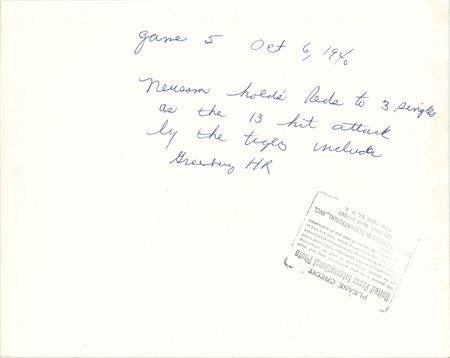 game 5 Oct 6, 1940
Newsom holds Reds to 3 singles
as the 13 hit attack
by the tigers include
Greenberg HR
PLEASE CREDIT
United Press International Photo
PRESS INTERNATIONAL, INC.
220 EAST 42nd STREET
NEW YORK 17, N. Y.